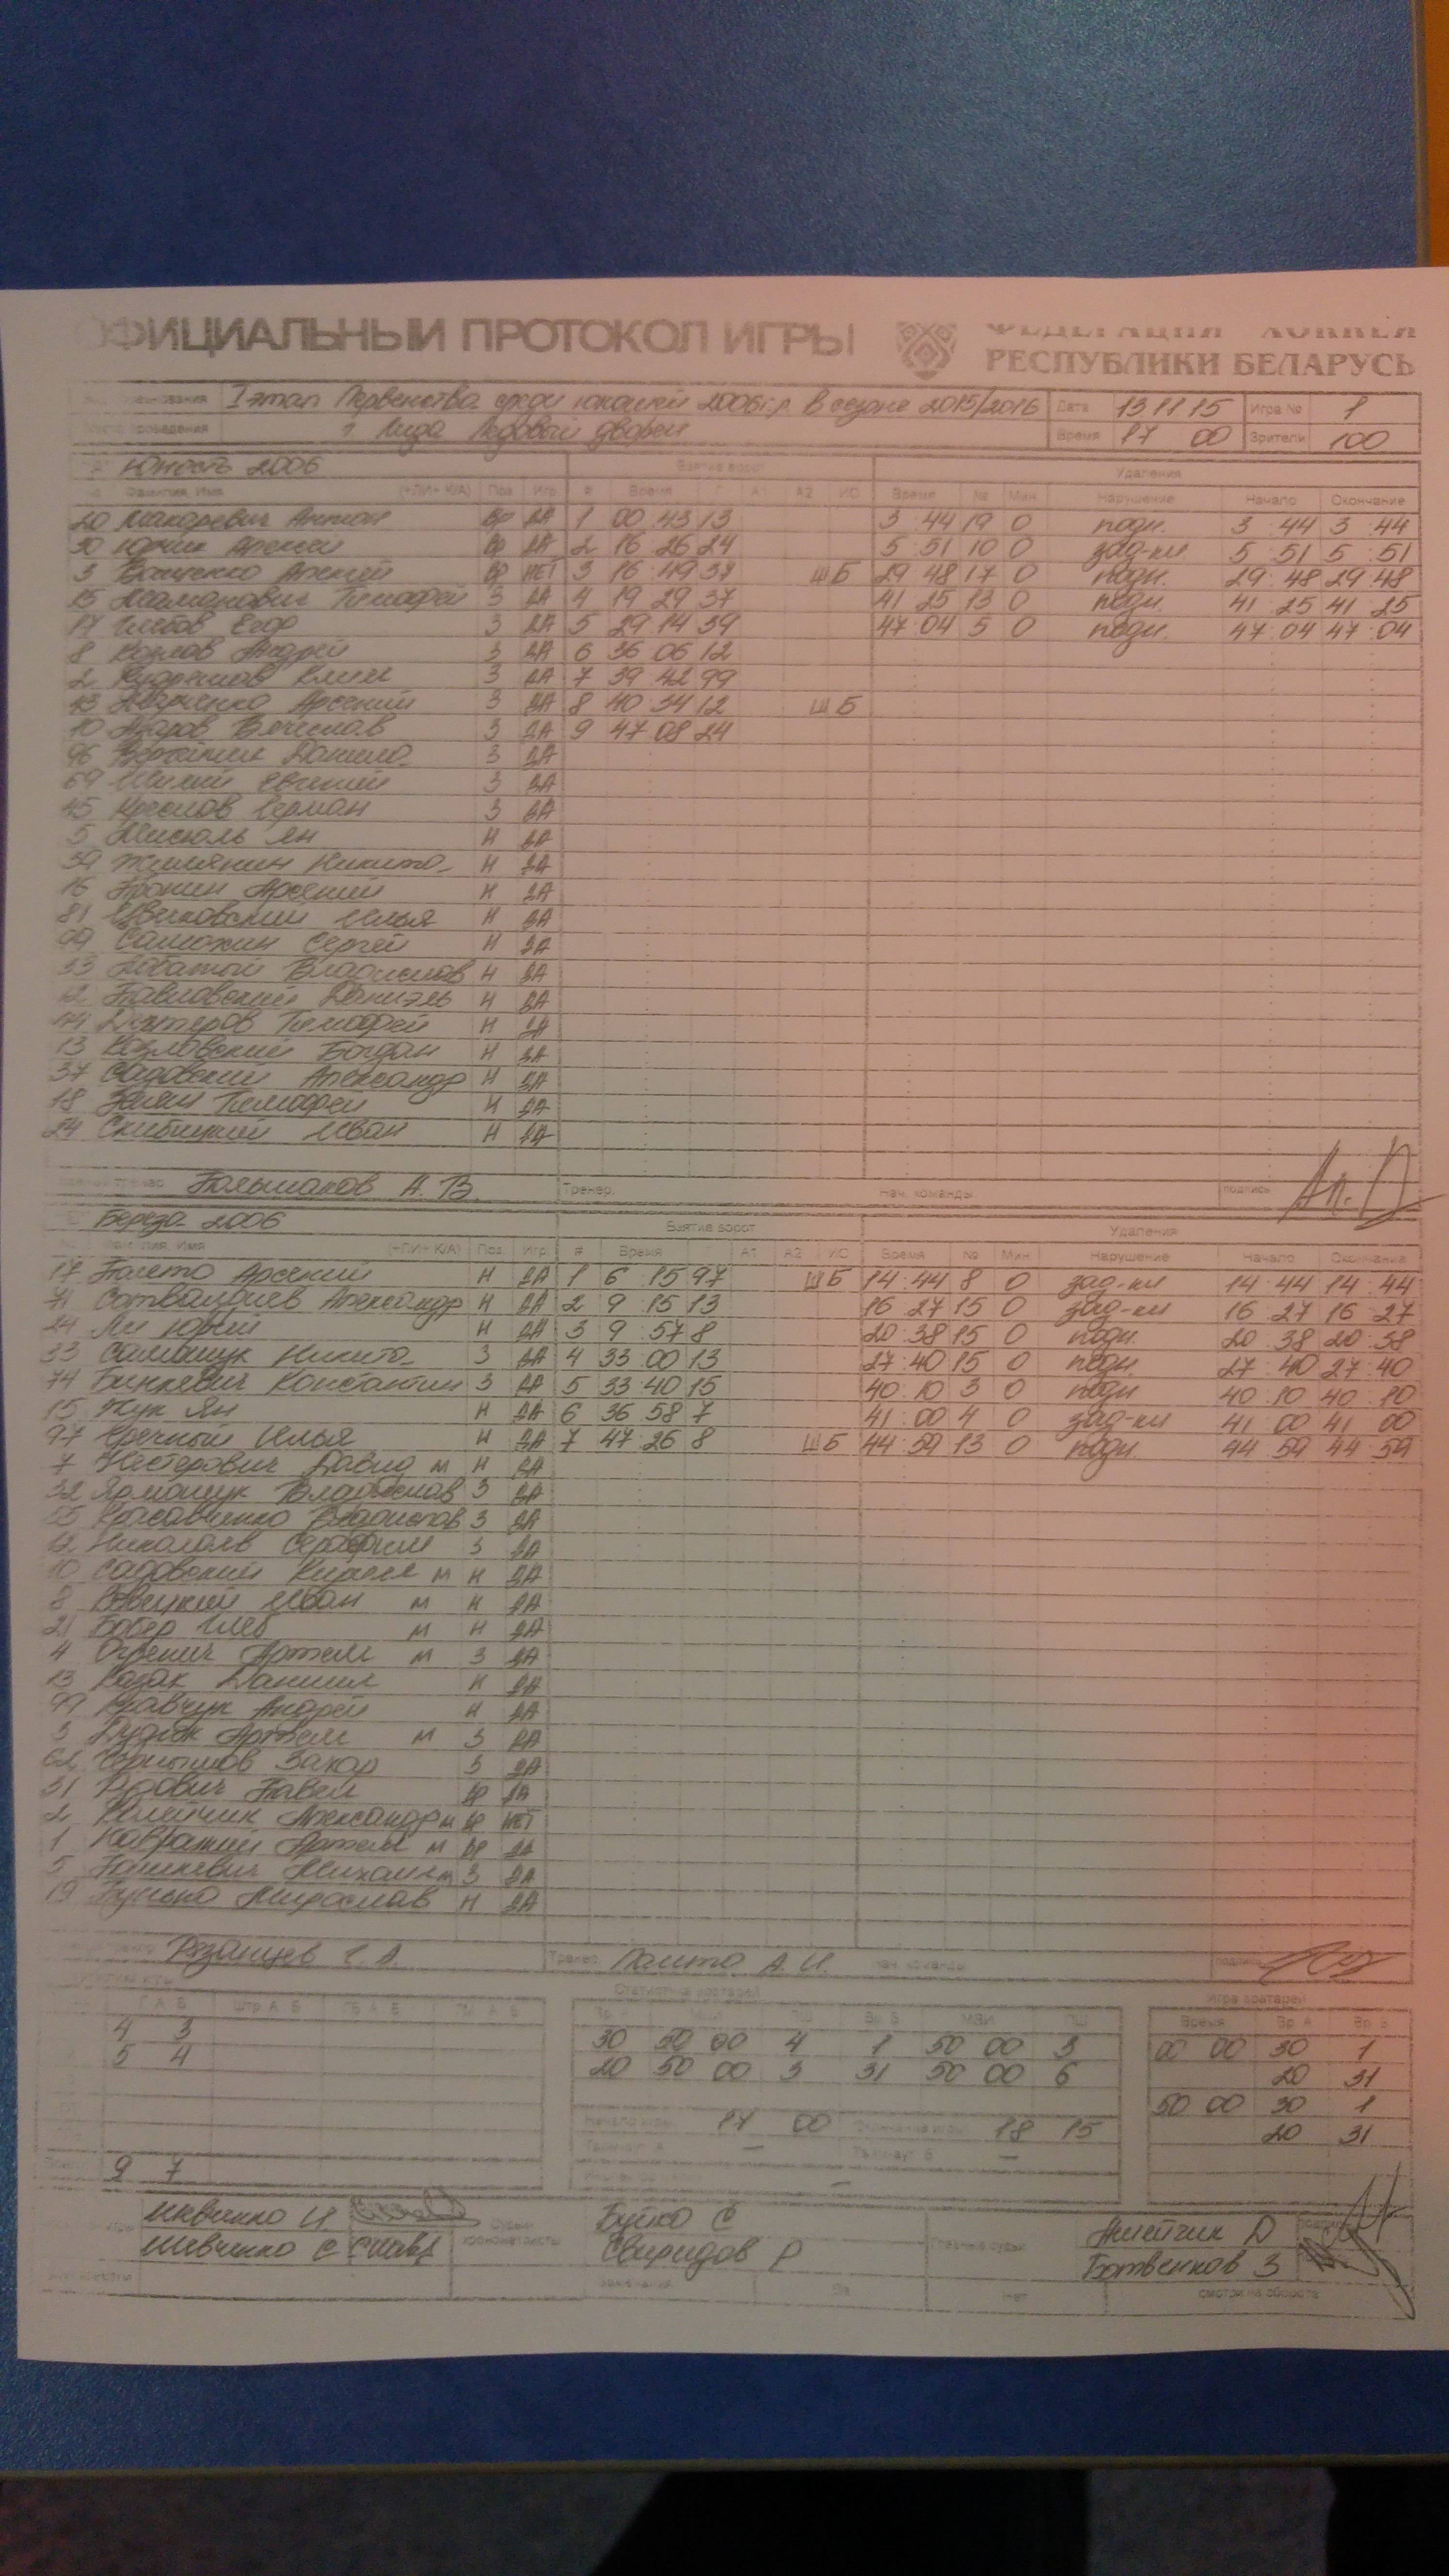 ОФИЦИАЛЬНЫЙ ПРОТОКОЛ ИГРЫ
ФЕДЕРАЦИЯ ХОККЕЯ
РЕСПУБЛИКИ БЕЛАРУСЬ
I этап Первенства среди юношей 2006 г.р. в сезоне 2015/2016 Дата 13 11 15 Игра № 1
г. Лида Ледовый дворец Время 17 00 Зрители 100
Юность 2006 Взятие ворот Удаления
Фамилия, Имя (+ПИ+ К/А) Поз. Игр. # Время Г А1 А2 ИС Время № Мин Нарушение Начало Окончание
20 Макаревич Антон Вр ДА 1 00 43 13 3 44 19 0 подн. 3 44 3 44
30 Юрчик Арсений Вр ДА 2 16 26 24 5 51 10 0 зад-ки 5 51 5 51
3 Вр НЕТ 3 16 49 37 ШБ 29 48 17 0 подн. 29 48 29 48
15 Тимофей З ДА 4 19 29 37 41 25 13 0 подн. 41 25 41 25
17 Глебов Егор З ДА 5 29 14 39 47 04 5 0 подн. 47 04 47 04
8 Козлов Андрей З ДА 6 36 06 12
2 Кудряшов Клим З ДА 7 39 42 99
Марченко Арсений З ДА 8 40 34 12 ШБ
10 Азаров Вячеслав З ДА 9 47 08 24
96 Данила З ДА
69 Евгений З ДА
45 Герман З ДА
5 Мисюль Ян Н ДА
39 Никита Н ДА
16 Пронин Арсений Н ДА
81 Илья Н ДА
99 Самохин Сергей Н ДА
33 Лобатый Владислав Н ДА
12 Павловский Даниэль Н ДА
44 Тимофей Н ДА
13 Козловский Богдан Н ДА
37 Садовский Александр Н ДА
18 Тимофей Н ДА
24 Скибицкий Иван Н ДА
Большаков А. В. Тренер: Нач. команды: подпись
Береза 2006 Взятие ворот Удаления
Имя (+ПИ+ К/А) Поз. Игр. # Время А1 А2 ИС Время № Мин Нарушение Начало Окончание
17 Арсений Н ДА 1 6 15 97 ШБ 14 44 8 0 зад-ки 14 44 14 44
71 Сотволдиев Александр Н ДА 2 9 15 13 16 27 15 0 зад-ки 16 27 16 27
24 Ли Юрий Н ДА 3 9 57 8 20 38 15 0 подн. 20 38 20 38
33 Самощук Никита З ДА 4 33 00 13 27 40 15 0 подн. 27 40 27 40
74 Бинкевич Константин З ДА 5 33 40 15 40 10 3 0 подн 40 10 40 10
15 Жук Ян Н ДА 6 36 58 7 41 00 4 0 зад-ки 41 00 41 00
97 Илья Н ДА 7 47 26 8 ШБ 44 59 13 0 подн. 44 59 44 59
7 Нестерович Давид м Н ДА
32 Ярмощук Владислав З ДА
55 Красавченко Владислав З ДА
12 Николаев Серафим З ДА
10 Садовский Кирилл м Н ДА
8 Иван м Н ДА
21 Бобер Глеб м Н ДА
4 Артем м З ДА
13 Казак Даниил Н ДА
99 Кравчук Андрей Н ДА
3 Дудюк Артем м З ДА
62 Чернышов Захар З ДА
31 Павел Вр ДА
2 Александр м Вр НЕТ
1 Артем м Вр ДА
5 Пашкевич Михаил м З ДА
19 Мирослав Н ДА
Рязанцев Г. А. Тренер: А. И. нач. команды подпись
Статистика вратарей Игра вратарей
Г А Б Штр А Б ГБ А Б ГМ А Б Вр А МВИ ПШ Вр Б МВИ ПШ Время Вр А Вр Б
4 3 30 50 00 4 1 50 00 3 00 00 30 1
5 4 20 50 00 3 31 50 00 6 20 31
50 00 30 1
Начало игры 17 00 Окончание игры 18 15 20 31
Тайм-аут А — Тайм-аут Б —
9 7 —
Шевченко И. Судьи Буйко С Жмейчик Д подпись
Шевченко С хронометристы Свиридов Р Главные судьи Ботвенков З
замечания Да Нет смотри на обороте